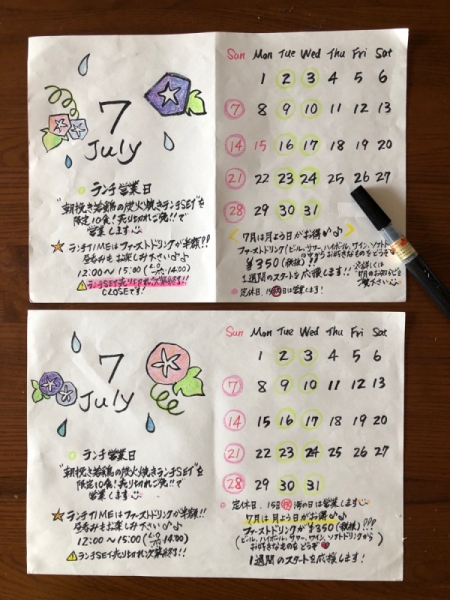 7
July
ランチ営業日
"朝挽き若鶏の炭火焼きランチSET"を
限定10食!売り切れご免!!で
営業します
ランチTIMEはファーストドリンクが半額!!
昼呑みもお楽しみ下さい♪♪
12:00～15:00 (L.O 14:00)
ランチSET売り切れ次第終了!!
CLOSEです!
Sun Mon Tue Wed Thu Fri Sat
1 2 3 4 5 6
7 8 9 10 11 12 13
14 15 16 17 18 19 20
21 22 23 24 25 26 27
28 29 30 31
7月は月よう日がお得♪♪
ファーストドリンク(ビール、サワー、ハイボール、ワイン、ソフトドリンク
の中からお好きなものをどうぞ
¥350(税抜)!!
1週間のスタートを応援します!!
定休日 15 祝日は営業します!
7
July
ランチ営業日
"朝挽き若鶏の炭火焼きランチSET"を
限定10食!売り切れご免!!で
営業します
ランチTIMEはファーストドリンクが半額!!
昼呑みもお楽しみ下さい♪♪
12:00～15:00 (L.O 14:00)
ランチSET売り切れ次第終了!!
Sun Mon Tue Wed Thu Fri Sat
1 2 3 4 5 6
7 8 9 10 11 12 13
14 15 16 17 18 19 20
21 22 23 24 25 26 27
28 29 30 31
定休日、15日祝海の日は営業します
7月は月よう日がお得♪♪
ファーストドリンクが¥350(税抜)!!!
(ビール、ハイボール、サワー、ワイン、ソフトドリンクから
お好きなものをどうぞ
1週間のスタートを応援します!